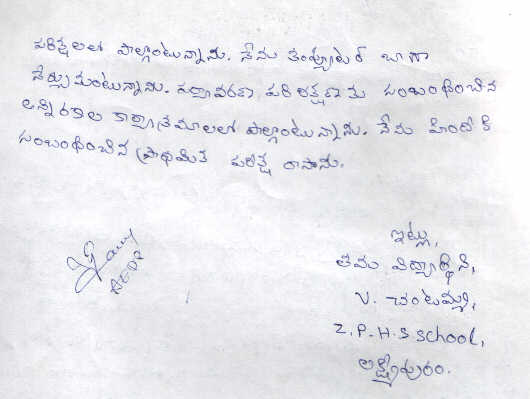 పరీక్షలలో పాల్గొంటున్నాను. నేను కంప్యూటర్ బాగా
నేర్చుకుంటున్నాను. పర్యావరణ పరిరక్షణకు సంబంధించిన
అన్నిరకాల కార్యక్రమాలలో పాల్గొంటున్నాను. నేను హిందీకి
సంబంధించిన ప్రాథమిక పరీక్ష రాసాను.
ఇట్లు,
తమ విద్యార్థిని,
V. చంటమ్మ,
Z.P.H.S School,
లక్ష్మీపురం.